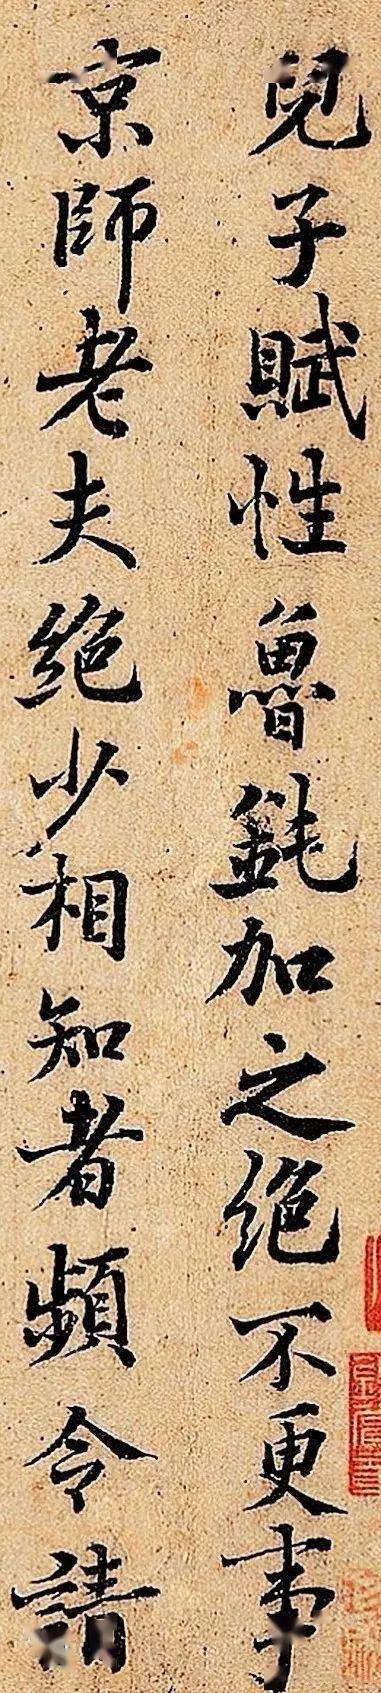 兒子賦性魯鈍加之絕不更事
京師老夫絕少相知者頻令請